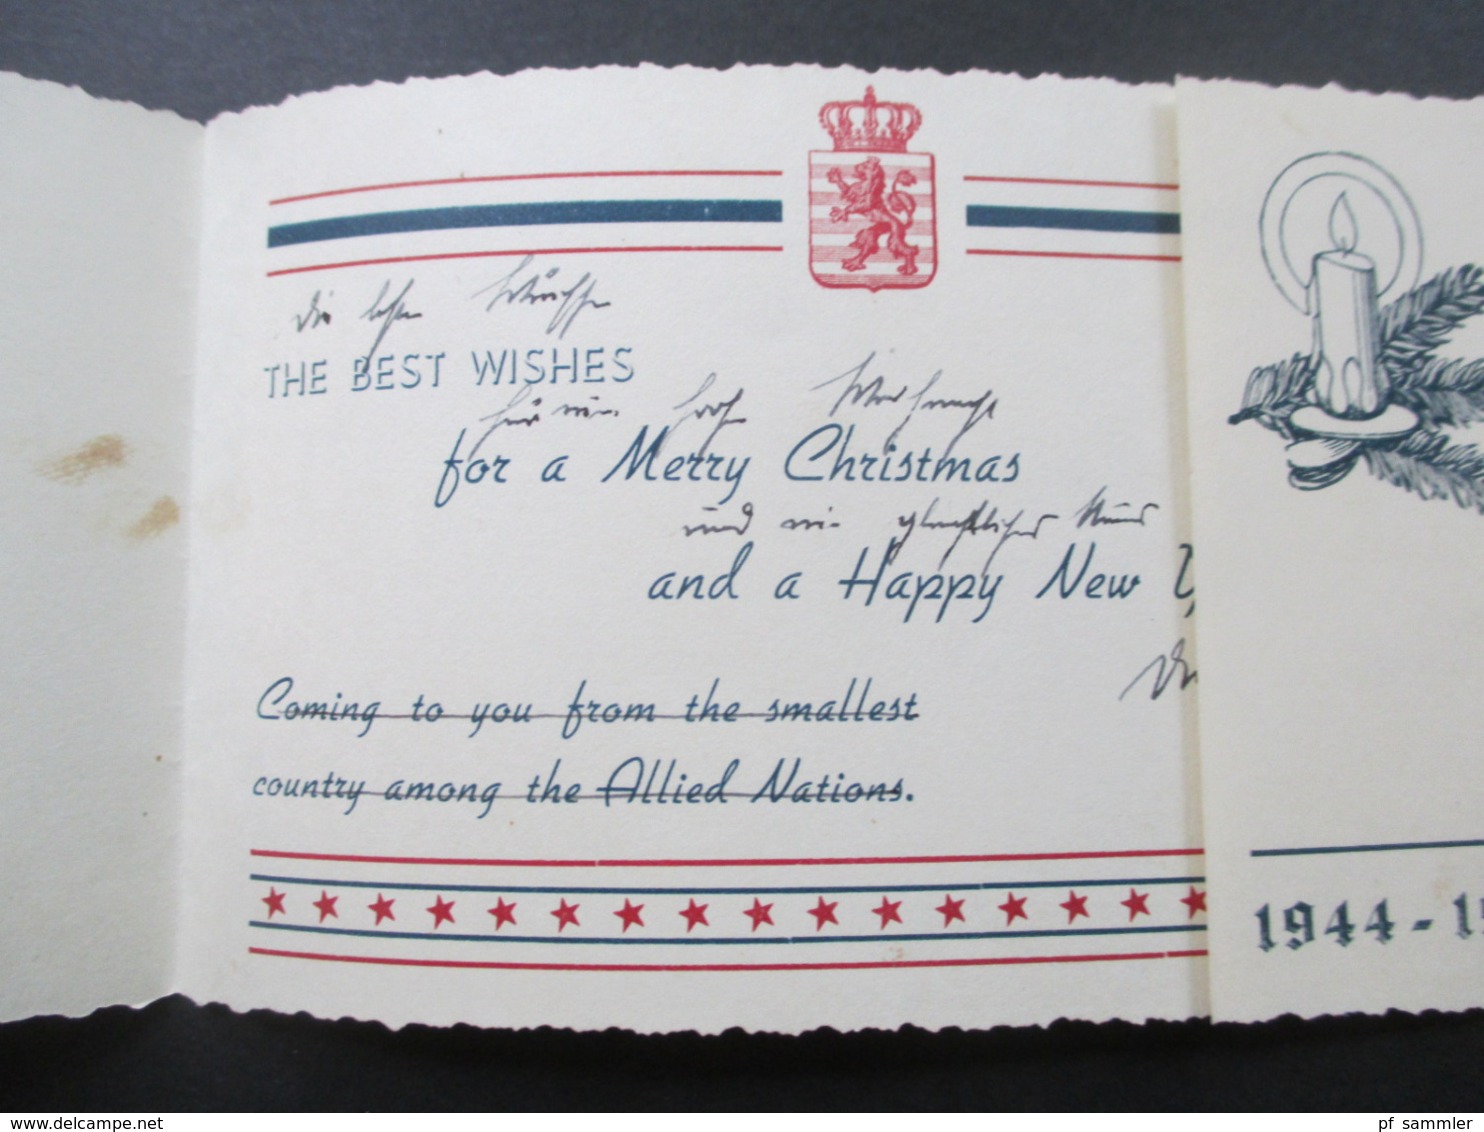 Die besten Wünsche
THE BEST WISHES
für eine frohe Weihnacht
for a Merry Christmas
und ein glückliches Neues
and a Happy New
Coming to you from the smallest
country among the Allied Nations.
1944-1
www.delcampe.net
pf_sammler